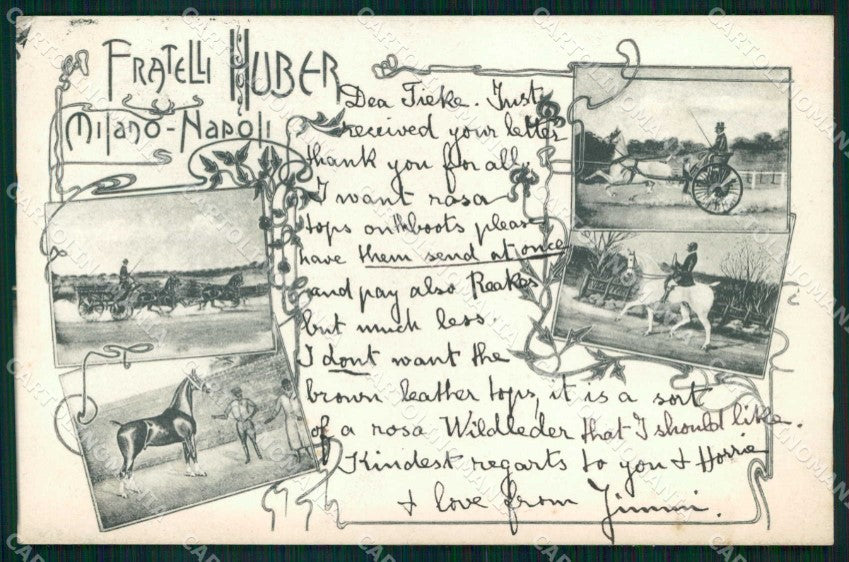 FRATELLI HUBER
Milano-Napoli
Dea Tieke. Just
received your letter
thank you for all.
I want rosa
tops on the boots please
have them send at once
and pay also Reakes
but much less.
I dont want the
brown leather tops, it is a sort
of a rosa Wildleder that I should like.
Kindest regarts to you & Horrie
& love from Jimmi.
CARTOLINOMANIA